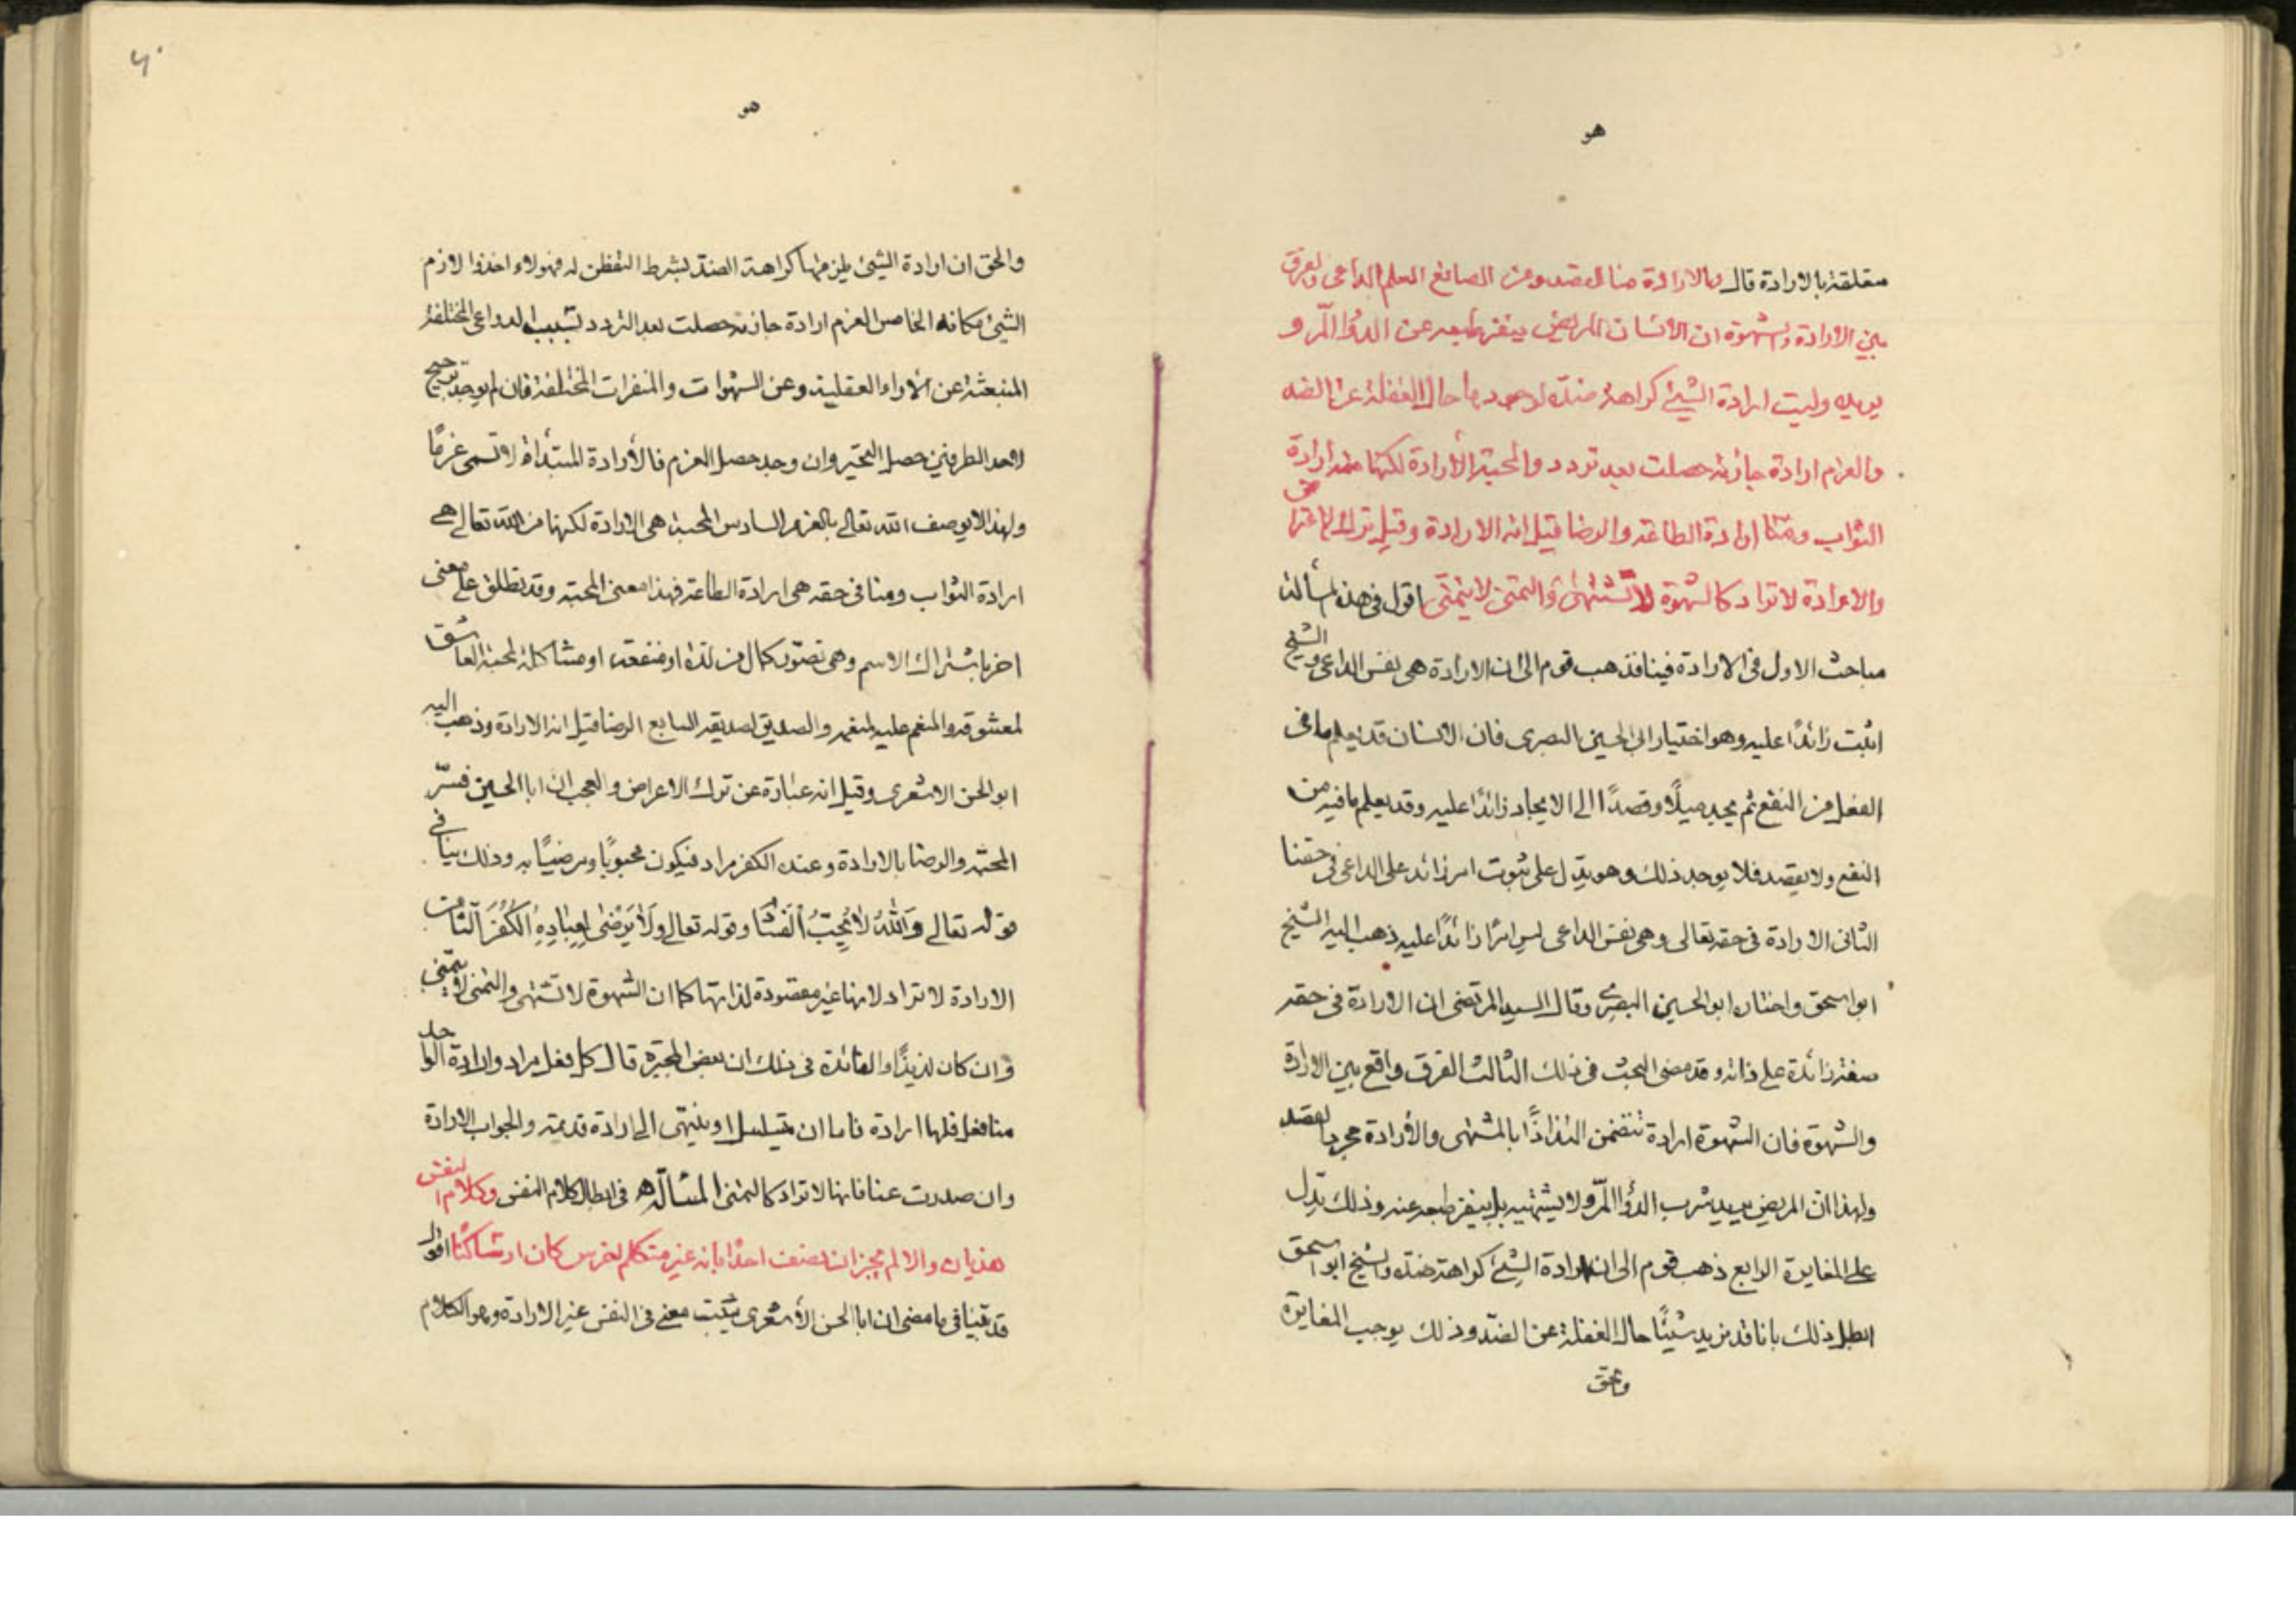 هو
متعلقة بالارادة قال والارادة منا القصد ومن الصانع العلم الداعى والفرق
بين الارادة والشهوة ان الانسان المريض ينفر طبعه عن الدواء المرّ و
يريده وليست ارادة الشيئ كراهة ضدّه لوجودها حال الغفلة عن الضد
والعزم ارادة جازمة حصلت بعد تردد والمحبة الأرادة لكنها منه ارادة
الثواب ومنّا ارادة الطاعة والرضا قيل انه الارادة وقيل ترك الاعتراض
والارادة لا تراد كالشهوة لا تُشتهى والتمنى لا يتمنّى اقول فى هذه المسألة
مباحث الاول فى الارادة فينا فذهب قوم الى ان الارادة هى نفس الداعى والشيخ
اثبت زائدًا عليه وهو اختيار ابى الحسين البصرى فان الانسان قد يعلم ما فى
الفعل من النفع ثم يجد ميلًا وقصدًا الى الايجاد زائدًا عليه وقد يعلم ما فيه من
النفع ولا يقصد فلا يوجد ذلك وهو يدّل على ثبوت امر زائد على الداعى فى حقنا
الثانى الارادة فى حقه تعالى وهى نفس الداعى ليس امرًا زائدًا عليه ذهب اليه الشيخ
ابو اسحق واختاره ابو الحسين البصرى وقال السيد المرتضى ان الارادة فى حقه
صفة زائدة على ذاته وقد مضى البحث فى ذلك الثالث الفرق واقع بين الارادة
والشهوة فان الشهوة ارادة تتضمن التذاذًا بالمشتهى والأرادة مجرد القصد
ولهذا ان المريض يريد شرب الدواء المرّ ولا يشتهيه بل ينفر طبعه عنه وذلك يدّل
على المغايرة الرابع ذهب قوم الى ان ارادة الشئ كراهة ضدّه والشيخ ابو اسحق
ابطل ذلك بانا قد نريد شيئًا حال الغفلة عن الضدّ وذلك يوجب المغايرة
والحق
هو
والحق ان ارادة الشيئ يلزمها كراهة الضدّ بشرط التفطن له فهولاء اخذوا لازم
الشيئ مكانه الخامس العزم ارادة جازمة حصلت بعد التردد بسبب الدواعى المختلفة
المنبعثة عن الاراء العقلية وعن الشهوات والمنفرات المختلفة فان لم يوجد ترجيح
لاحد الطرفين حصل التحير وان وجد حصل العزم فالأرادة المبتدأة لا تسمى عزمًا
ولهذا لا يوصف الله تعالى بالعزم السادس المحبة هى الارادة لكنها من الله تعالى هى
ارادة الثواب ومنا فى حقه هى ارادة الطاعة فهذا معنى المحبة وقد تطلق على معنى
اخر باشتراك الاسم وهى تصوّر كمال من لذة او منفعة او مشاكلة كمحبة العاشق
لمعشوقه والمنعم عليه لمنعمه والصديق لصديقه السابع الرضا قيل انه الارادة وذهب اليه
ابو الحسن الاشعرى وقيل انه عبارة عن ترك الاعراض والعجب ان ابا الحسين فسّر
المحبة والرضا بالارادة وعنده الكفر مراد فيكون محبوبًا ومرضيًا به وذلك ينافى
قوله تعالى وَاللهُ لا يُحِبّ الفَسَا وقوله تعالى ولا يَرْضٰى لِعِبادِهِ الكُفْرَ الثامن
الارادة لا تراد لانها غير مقصودة لذاتها كما ان الشهوة لا تشتهى والتمنى لا يتمنى
وان كان لذيذًا والفائدة فى ذلك ان بعض المجبرة قال كل فعل مراد وارادة الواحد
منا فعل فلها ارادة فاما ان يتسلسل او ينتهى الى ارادة قديمة والجواب الارادة
وان صدرت عنا فانها لا تراد كالتمنى المسألة ه‍ فى ابطال كلام النفس وكلام النفس
هذيان والا لم يجز ان نصف احدًا بانه غير متكلم لخرس كان او ساكتًا اقول
قد بيّنا فى ما مضى ان ابا الحسن الأشعرى يثبت معنى فى النفس غير الارادة وهو الكلام